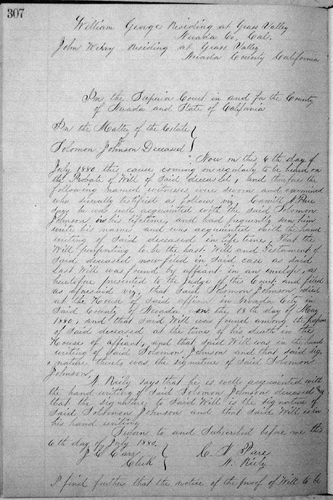 307
William George Residing at Grass Valley
Nevada Co, Cal.
John Residing at Grass Valley
Nevada County California
In the Superior Court in and for the County
of Nevada and State of California
In the Matter of the Estate
of
Solomon Johnson Deceased
Now on this 6th day of
July 1880 this cause coming on regularly to be heard on
the Probate of Will of Said Deceased, and thereupon the
following named witnesses were sworn and examined
who testified as follows
says he was well acquainted with the said Solomon
Johnson in his lifetime, and had frequently seen him
write his name and was acquainted with the hand
writing of Said deceased in life time, That the
Will purporting to be the last Will and Testament of
Said deceased now filed in Said case as Said
last Will was found by affiant in an envelope, as
heretofore presented to the Judge of this Court and filed
as aforesaid by That Solomon Johnson died
at the House of Said affiant in Nevada City in
Said County of Nevada, on the 18th day of May
1880, and that Said Will was found among the papers
of Said deceased at the time of his death in the
House of affiant, and that said Will was in the hand
writing of Said Solomon Johnson and that said sig
nature thereto was the signature of Said Solomon
Johnson,
says that he is well acquainted with
the hand writing of Said Solomon Johnson deceased
that the signature to Said Will is the signature of
Said Solomon Johnson and that Said Will is in
his hand writing
Sworn to and Subscribed before me this
6th day of July 1880.
Clerk
I find further that the notice of the proof of Will to be